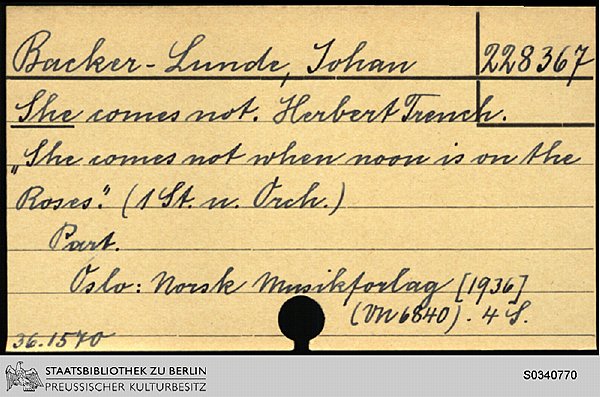 Backer-Lunde, Johan
228367
She comes not. Herbert Trench.
„She comes not when noon is on the
Roses“. (1 St. u. Orch.)
Part.
Oslo: Norsk Musikforlag [1936]
(VN 6840). 4 S.
36.1570
STAATSBIBLIOTHEK ZU BERLIN
PREUSSISCHER KULTURBESITZ
S0340770